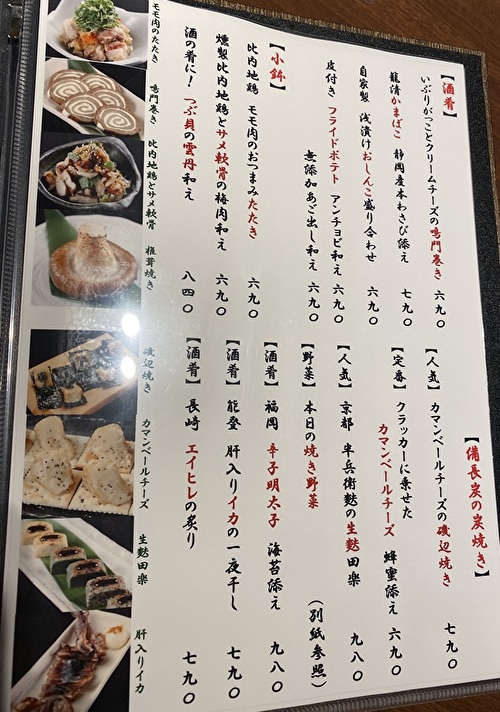 【酒肴】
いぶりがっことクリームチーズの鳴門巻き 六九〇
龍清かまぼこ 静岡産本わさび添え 七九〇
自家製 浅漬けおしんこ盛り合わせ 六九〇
皮付きフライドポテト アンチョビ和え 六九〇
無添加あご出し和え 六九〇
【小鉢】
比内地鶏 モモ肉のおつまみたたき 六九〇
燻製比内地鶏とサメ軟骨の梅肉和え 六九〇
酒の肴に！つぶ貝の雲丹和え 八四〇
【備長炭の炭焼き】
【人気】カマンベールチーズの磯辺焼き 七九〇
【定番】クラッカーに乗せた
カマンベールチーズ 蜂蜜添え 六九〇
【人気】京都 半兵衛麩の生麩田楽 九八〇
【野菜】本日の焼き野菜 （別紙参照）
【酒肴】福岡 辛子明太子 海苔添え 九八〇
【酒肴】能登 肝入りイカの一夜干し 七九〇
【酒肴】長崎 エイヒレの炙り 七九〇
モモ肉のたたき
鳴門巻き
比内地鶏とサメ軟骨
椎茸焼き
磯辺焼き
カマンベールチーズ
生麩田楽
肝入りイカ